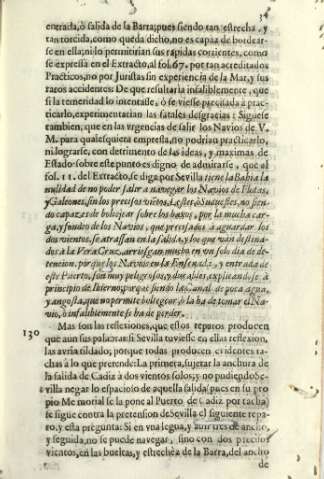 entrada, ò salida de la Barra, pues siendo tan estrecha, y
tan torcida, como queda dicho, no es capaz de bordear-
se en ella; ni lo permitirian sus rapidas corrientes, como
se expressa en el Extracto, al fol. 67. por tan acreditados
Practicos, no por Juristas sin experiencia de la Mar, y sus
raros accidentes: De que resultaria infaliblemente, que
si la temeridad lo intentasse, ò se viesse precisada à prac-
ticarlo, experimentarian las fatales desgracias: Siguese
tambien, que en las urgencias de salir los Navios de V.
M. para qualesquiera empressa, no podrian practicarlo,
ni lograrse, con detrimento de las ideas, y maximas de
Estado: sobre este punto es digno de admirarse, que al
fol. 11. del Extracto, se diga por Sevilla tiene la Bahìa la
nulidad de no poder salir à navegar los Navios de Flotas,
y Galeones, sin los precisos vientos, Lestes, ò Suduestes, no sien-
do capazes de boltejear sobre los baxos, por la mucha car-
ga, y fondeo de los Navios, que precisados à aguardar los
dos vientos, se atrassan en la salida, y los que van destina-
dos à la Vera Cruz, arriesgan mucho en un solo dia de de-
tencion, porque los Navios en la Ensenada, y entrada de
este Puerto, son muy peligrosos, y dos
principio de Invierno, porque siendo las Canal de poca agua,
y angosta, que no permite boltegear, ò la ha de tomar el Na-
vio, ò infaliblemente se ha de perder.
130 Mas son las reflexiones, que estos reparos producen
que aun sus palabras: si Sevilla tuviesse en ellas reflexion,
las avria tildado, porque todas producen evidentes ta-
chas à lo que pretende: La primera, sujetar la anchura de
la salida de Cadiz à dos vientos solos; y no pudiendo Se-
villa negar lo espacioso de aquella salida (pues en su pro-
pio Memorial se la pone al Puerto de Cadiz por tacha)
se sigue contra la pretension de Sevilla el siguiente repa-
ro, y esta pregunta: Si en una legua, y aun tres de ancho,
y seguida, no se puede navegar, sino con dos precisos
vientos, en las bueltas, y estrechèz de la Barra, del ancho
de